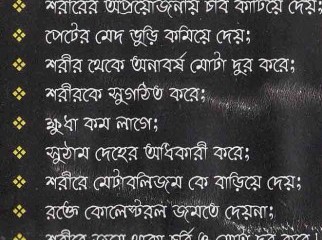 শরীরের অপ্রয়োজনীয় চর্বি কাটিয়ে দেয়;
পেটের মেদ ভুড়ি কমিয়ে দেয়;
শরীর থেকে অনাবর্ষ মোটা দুর করে;
শরীরকে সুগঠিত করে;
ক্ষুধা কম লাগে;
সুঠাম দেহের অধিকারী করে;
শরীরে মেটাবলিজম কে বাড়িয়ে দেয়;
রক্তে কোলেস্টরল জমতে দেয়না;
শরীরে